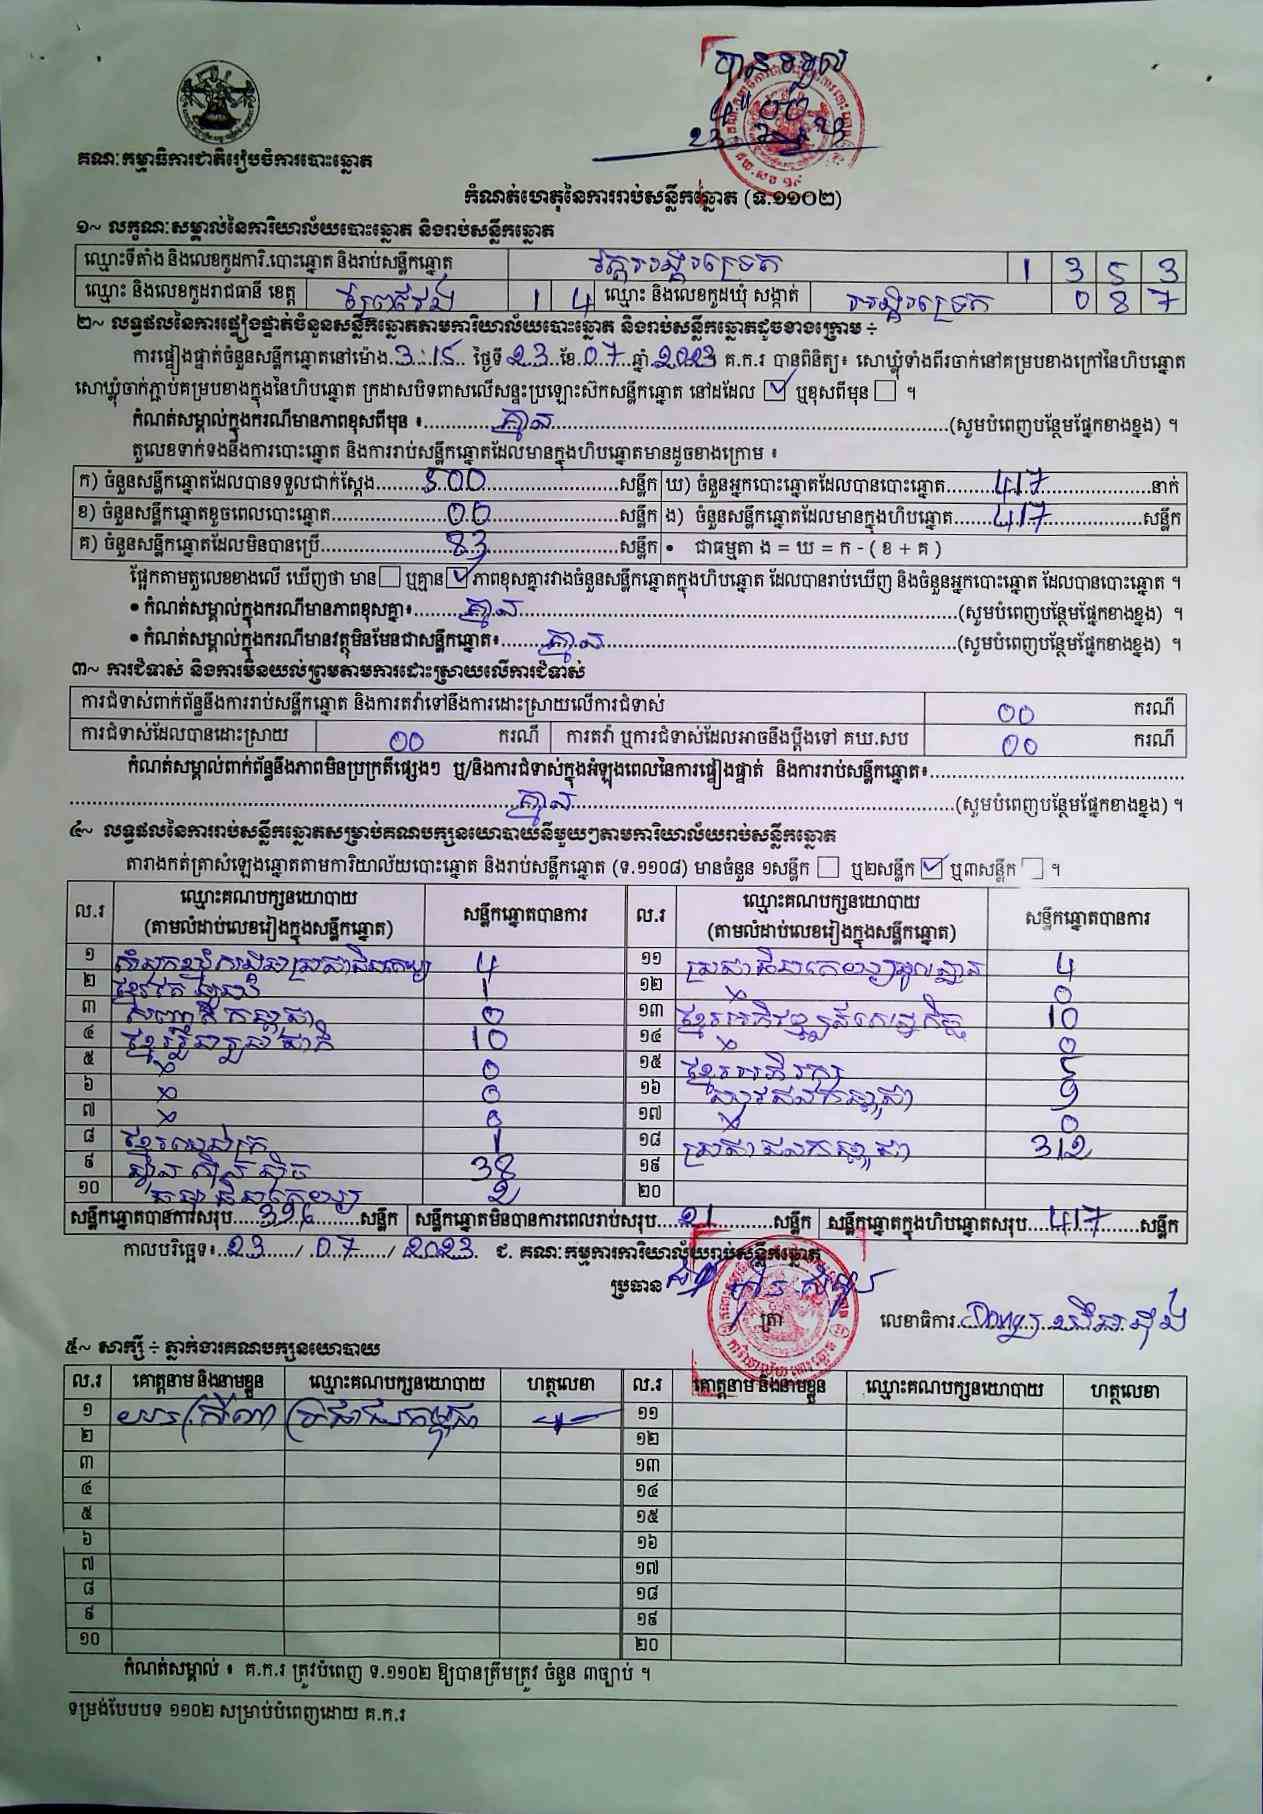 បានទទួល
គណៈកម្មាធិការជាតិរៀបចំការបោះឆ្នោត
កំណត់ហេតុនៃការរាប់សន្លឹកឆ្នោត (ទ.១១០២)
១~ លក្ខណៈសម្គាល់នៃការិយាល័យបោះឆ្នោត និងរាប់សន្លឹកឆ្នោត
ឈ្មោះទីតាំង និងលេខកូដការិ.បោះឆ្នោត និងរាប់សន្លឹកឆ្នោត វត្តអង្គរទ្រេត 1 3 5 3
ឈ្មោះ និងលេខកូដរាជធានី ខេត្ត ព្រៃវែង 1 4 ឈ្មោះ និងលេខកូដឃុំ សង្កាត់ អង្គរទ្រេត 0 8 7
២~ លទ្ធផលនៃការផ្ទៀងផ្ទាត់ចំនួនសន្លឹកឆ្នោតតាមការិយាល័យបោះឆ្នោត និងរាប់សន្លឹកឆ្នោតដូចខាងក្រោម ÷
ការផ្ទៀងផ្ទាត់ចំនួនសន្លឹកឆ្នោតនៅម៉ោង 3:15 ថ្ងៃទី 23 ខែ 07 ឆ្នាំ 2023 គ.ក.រ បានពិនិត្យ៖ សោឃ្លុំទាំងពីរចាក់នៅគម្របខាងក្រៅនៃហិបឆ្នោត
សោឃ្លុំចាក់ភ្ជាប់គម្របខាងក្នុងនៃហិបឆ្នោត ក្រដាសបិទពាសលើសន្ទះប្រឡោះស៊កសន្លឹកឆ្នោត នៅដដែល ឬខុសពីមុន ។
កំណត់សម្គាល់ក្នុងករណីមានភាពខុសពីមុន ៖ គ្មាន (សូមបំពេញបន្ថែមផ្នែកខាងខ្នង) ។
តួលេខទាក់ទងនឹងការបោះឆ្នោត និងការរាប់សន្លឹកឆ្នោតដែលមានក្នុងហិបឆ្នោតមានដូចខាងក្រោម ៖
ក) ចំនួនសន្លឹកឆ្នោតដែលបានទទួលជាក់ស្តែង 500 សន្លឹក ឃ) ចំនួនអ្នកបោះឆ្នោតដែលបានបោះឆ្នោត 417 នាក់
ខ) ចំនួនសន្លឹកឆ្នោតខូចពេលបោះឆ្នោត 00 សន្លឹក ង) ចំនួនសន្លឹកឆ្នោតដែលមានក្នុងហិបឆ្នោត 417 សន្លឹក
គ) ចំនួនសន្លឹកឆ្នោតដែលមិនបានប្រើ 83 សន្លឹក • ជាធម្មតា ង = ឃ = ក - ( ខ + គ )
ផ្អែកតាមតួលេខខាងលើ ឃើញថា មាន ឬគ្មាន ភាពខុសគ្នារវាងចំនួនសន្លឹកឆ្នោតក្នុងហិបឆ្នោត ដែលបានរាប់ឃើញ និងចំនួនអ្នកបោះឆ្នោត ដែលបានបោះឆ្នោត ។
• កំណត់សម្គាល់ក្នុងករណីមានភាពខុសគ្នា៖ គ្មាន (សូមបំពេញបន្ថែមផ្នែកខាងខ្នង) ។
• កំណត់សម្គាល់ក្នុងករណីមានវត្ថុមិនមែនជាសន្លឹកឆ្នោត៖ គ្មាន (សូមបំពេញបន្ថែមផ្នែកខាងខ្នង) ។
៣~ ការជំទាស់ និងការមិនយល់ព្រមតាមការដោះស្រាយលើការជំទាស់
ការជំទាស់ពាក់ព័ន្ធនឹងការរាប់សន្លឹកឆ្នោត និងការតវ៉ាទៅនឹងការដោះស្រាយលើការជំទាស់ 00 ករណី
ការជំទាស់ដែលបានដោះស្រាយ 00 ករណី ការតវ៉ា ឬការជំទាស់ដែលអាចនឹងប្តឹងទៅ គឃ.សប 00 ករណី
កំណត់សម្គាល់ពាក់ព័ន្ធនឹងភាពមិនប្រក្រតីផ្សេងៗ ឬ/និងការជំទាស់ក្នុងអំឡុងពេលនៃការផ្ទៀងផ្ទាត់ និងការរាប់សន្លឹកឆ្នោត៖
គ្មាន (សូមបំពេញបន្ថែមផ្នែកខាងខ្នង) ។
៤~ លទ្ធផលនៃការរាប់សន្លឹកឆ្នោតសម្រាប់គណបក្សនយោបាយនីមួយៗតាមការិយាល័យរាប់សន្លឹកឆ្នោត
តារាងកត់ត្រាសំឡេងឆ្នោតតាមការិយាល័យបោះឆ្នោត និងរាប់សន្លឹកឆ្នោត (ទ.១១០៨) មានចំនួន ១សន្លឹក ឬ២សន្លឹក ឬ៣សន្លឹក ។
ល.រ ឈ្មោះគណបក្សនយោបាយ (តាមលំដាប់លេខរៀងក្នុងសន្លឹកឆ្នោត) សន្លឹកឆ្នោតបានការ ល.រ ឈ្មោះគណបក្សនយោបាយ (តាមលំដាប់លេខរៀងក្នុងសន្លឹកឆ្នោត) សន្លឹកឆ្នោតបានការ
១ 4 ១១ 4
២ 1 ១២ 0
៣ 0 ១៣ ខ្មែរអភិវឌ្ឍន៍សេដ្ឋកិច្ច 10
៤ ខ្មែររួបរួមជាតិ 10 ១៤ 0
៥ 0 ១៥ ខ្មែរអភិរក្ស 5
៦ 0 ១៦ 9
៧ 0 ១៧ 0
៨ ខ្មែរឈប់ក្រ 1 ១៨ ប្រជាជនកម្ពុជា 312
៩ ហ្វ៊ុនស៊ិនប៉ិច 38 ១៩
១០ 2 ២០
សន្លឹកឆ្នោតបានការសរុប 396 សន្លឹក សន្លឹកឆ្នោតមិនបានការពេលរាប់សរុប 21 សន្លឹក សន្លឹកឆ្នោតក្នុងហិបឆ្នោតសរុប 417 សន្លឹក
កាលបរិច្ឆេទ៖ 23 / 07 / 2023 ជ. គណៈកម្មការការិយាល័យរាប់សន្លឹកឆ្នោត
ប្រធាន
ត្រា លេខាធិការ
៥~ សាក្សី ÷ ភ្នាក់ងារគណបក្សនយោបាយ
ល.រ គោត្តនាម និងនាមខ្លួន ឈ្មោះគណបក្សនយោបាយ ហត្ថលេខា ល.រ គោត្តនាម និងនាមខ្លួន ឈ្មោះគណបក្សនយោបាយ ហត្ថលេខា
១ ប្រជាជនកម្ពុជា ១១
២ ១២
៣ ១៣
៤ ១៤
៥ ១៥
៦ ១៦
៧ ១៧
៨ ១៨
៩ ១៩
១០ ២០
កំណត់សម្គាល់ ៖ គ.ក.រ ត្រូវបំពេញ ទ.១១០២ ឱ្យបានត្រឹមត្រូវ ចំនួន ៣ច្បាប់ ។
ទម្រង់បែបបទ ១១០២ សម្រាប់បំពេញដោយ គ.ក.រ